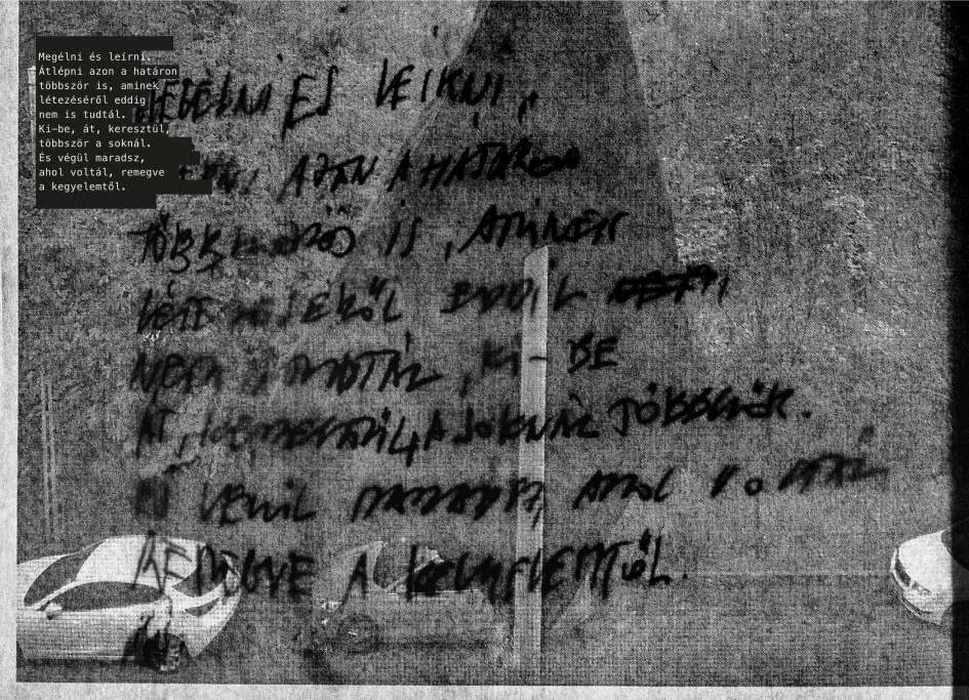 Megélni és leírni.
Átlépni azon a határon
többször is, aminek
létezéséről eddig
nem is tudtál.
Ki-be, át, keresztül,
többször a soknál.
És végül maradsz,
ahol voltál, remegve
a kegyelemtől.
MEGÉLNI ÉS LEÍRNI,
AZON A HATÁRON
TÖBBSZÖR IS, AMINEK
LÉTEZÉSÉRŐL EDDIG
NEM IS TUDTÁL, KI-BE
ÁT, KERESZTÜL, A SOKNÁL TÖBBSZÖR.
ÉS VÉGÜL MARADSZ, AHOL VOLTÁL
REMEGVE A KEGYELEMTŐL.